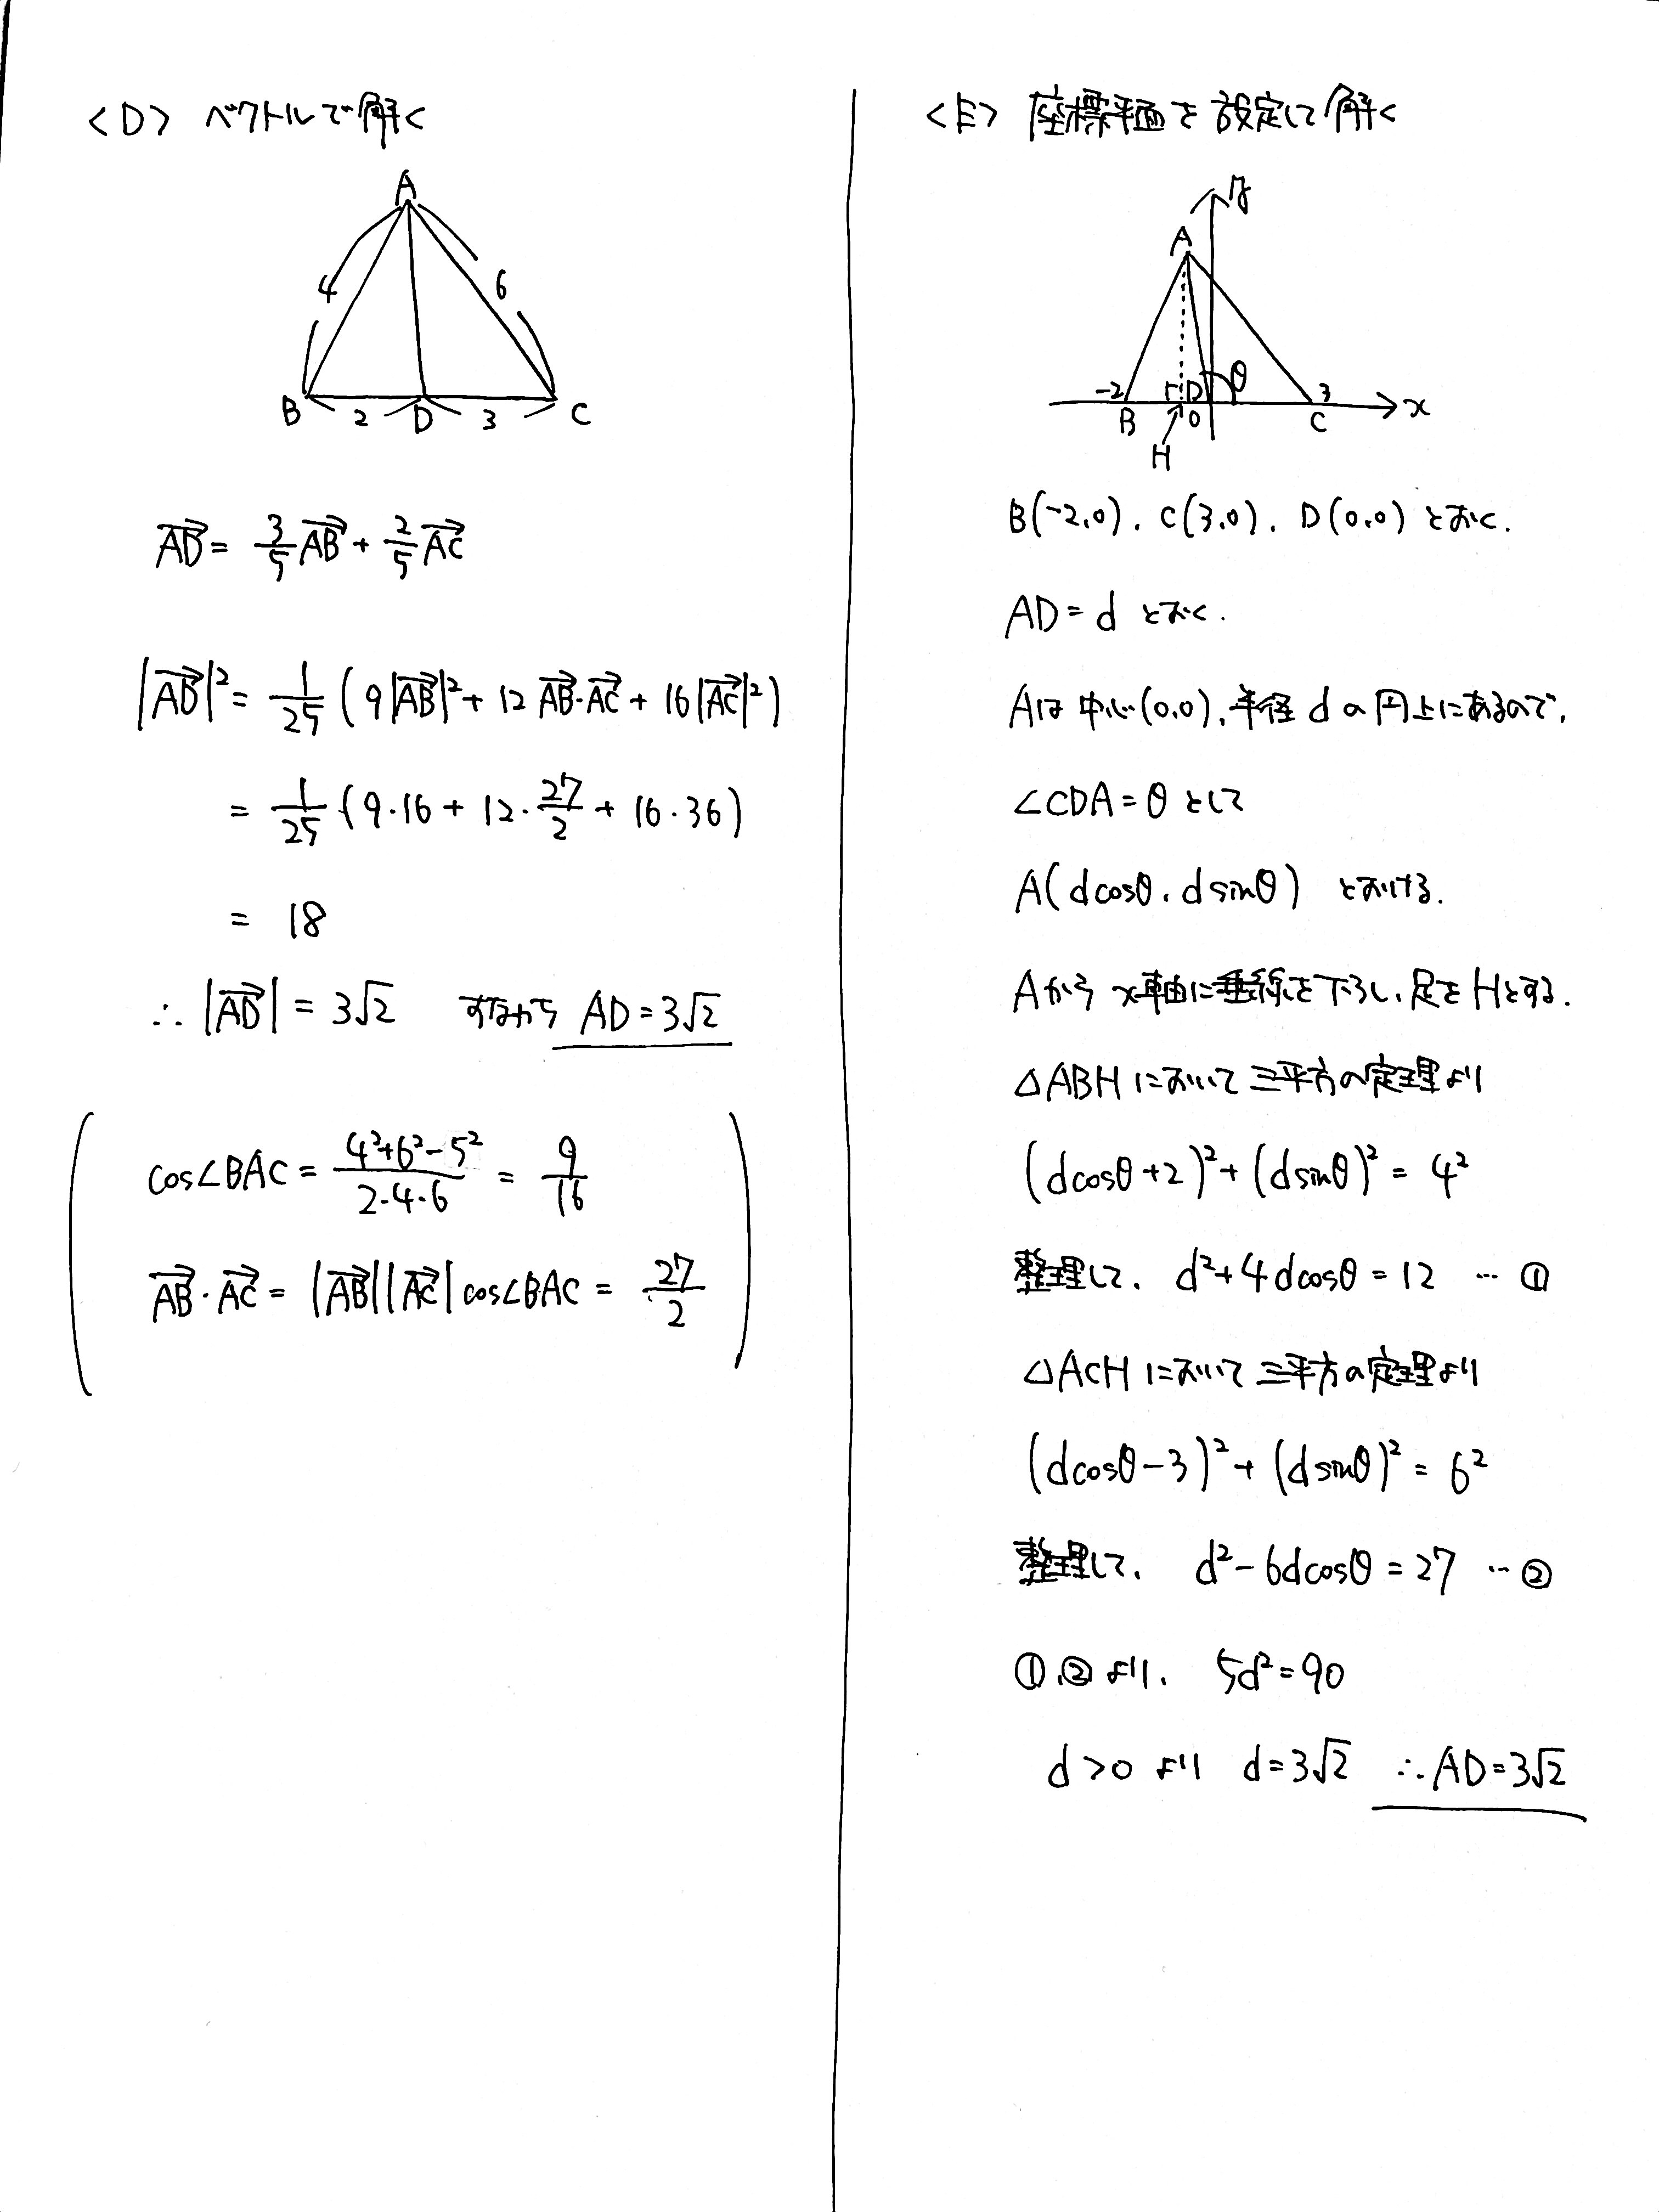 <D> ベクトルで解く
A
4
6
B 2 D 3 C
AD→ = 3/5 AB→ + 2/5 AC→
|AD→|² = 1/25 (9|AB→|² + 12 AB→・AC→ + 16|AC→|²)
= 1/25 (9・16 + 12・27/2 + 16・36)
= 18
∴ |AD→| = 3√2 すなわち AD = 3√2
cos∠BAC = (4²+6²−5²)/(2・4・6) = 9/16
AB→・AC→ = |AB→||AC→|cos∠BAC = 27/2
<E> 座標平面を設定して解く
y
A
θ
-2 D 3
B O C x
H
B(-2,0), C(3,0), D(0,0) とおく.
AD = d とおく.
Aは中心(0,0), 半径dの円上にあるので,
∠CDA = θ として
A(dcosθ, dsinθ) とおける.
Aからx軸に垂線を下ろし, 足をHとする.
△ABHにおいて三平方の定理より
(dcosθ+2)² + (dsinθ)² = 4²
整理して, d²+4dcosθ = 12 … ①
△ACHにおいて三平方の定理より
(dcosθ−3)² + (dsinθ)² = 6²
整理して, d²−6dcosθ = 27 … ②
①,②より, 5d² = 90
d>0 より d = 3√2 ∴ AD = 3√2